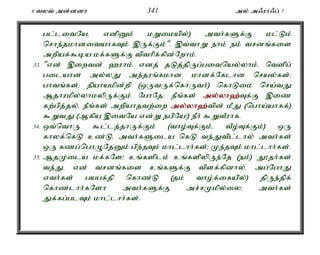 8 வலவ் அன்னனா 341 அல் அஃராஃப் 7
பட்டவையே, எனினும் மறுமையில்) அவர்களுக்கு மட்டும்
சொந்தமானவையாகவும் இருக்கும்". இவ்வாறு நாம் நம் வசனங்களை
அறியக்கூடிய மக்களுக்கு விவரிக்கின்றோம்.
33. "என் இறைவன் ஹராம் எனத் தடுத்திருப்பவையெல்லாம், வெளிப்
படையான அல்லது அந்தரங்கமான, மானக்கேடான செயல்கள்;
பாவங்கள்; நியாயமின்றி (ஒருவருக்கொருவர்) கொடுமை செய்வது
ஆதாரமில்லாமலிருக்கும் போதே; நீங்கள் அல்லாஹ்வுக்கு இணை
கற்பித்தல், நீங்கள் அறியாதவற்றை அல்லாஹ்வின் மீது (பொய்யாகக்)
கூறுவது (ஆகிய இவையே என்று நபியே) நீர் கூறுவீராக.
34. ஒவ்வொரு கூட்டத்தாருக்கும் (வாழ்வுக்கும், வீழ்வுக்கும்) ஒரு
காலக்கெடு உண்டு, அவர்களுடைய கெடு வந்துவிட்டால் அவர்கள்
ஒரு கணப்பொழுதேனும் பிந்தவும் மாட்டார்கள்; முந்தவும் மாட்டார்கள்.
35. ஆதமுடைய மக்களே! உங்களிடம் உங்களிலிருந்தே (நம்) தூதர்கள்
வந்து, என் வசனங்களை உங்களுக்கு விளக்கினால், அப்போது
எவர்கள் பயபக்தி கொண்டு (தம் வாழ்க்கையில்) திருந்திக்
கொண்டார்களோ அவர்களுக்கு அச்சமுமில்லை; அவர்கள்
துக்கப்படவும் மாட்டார்கள்.